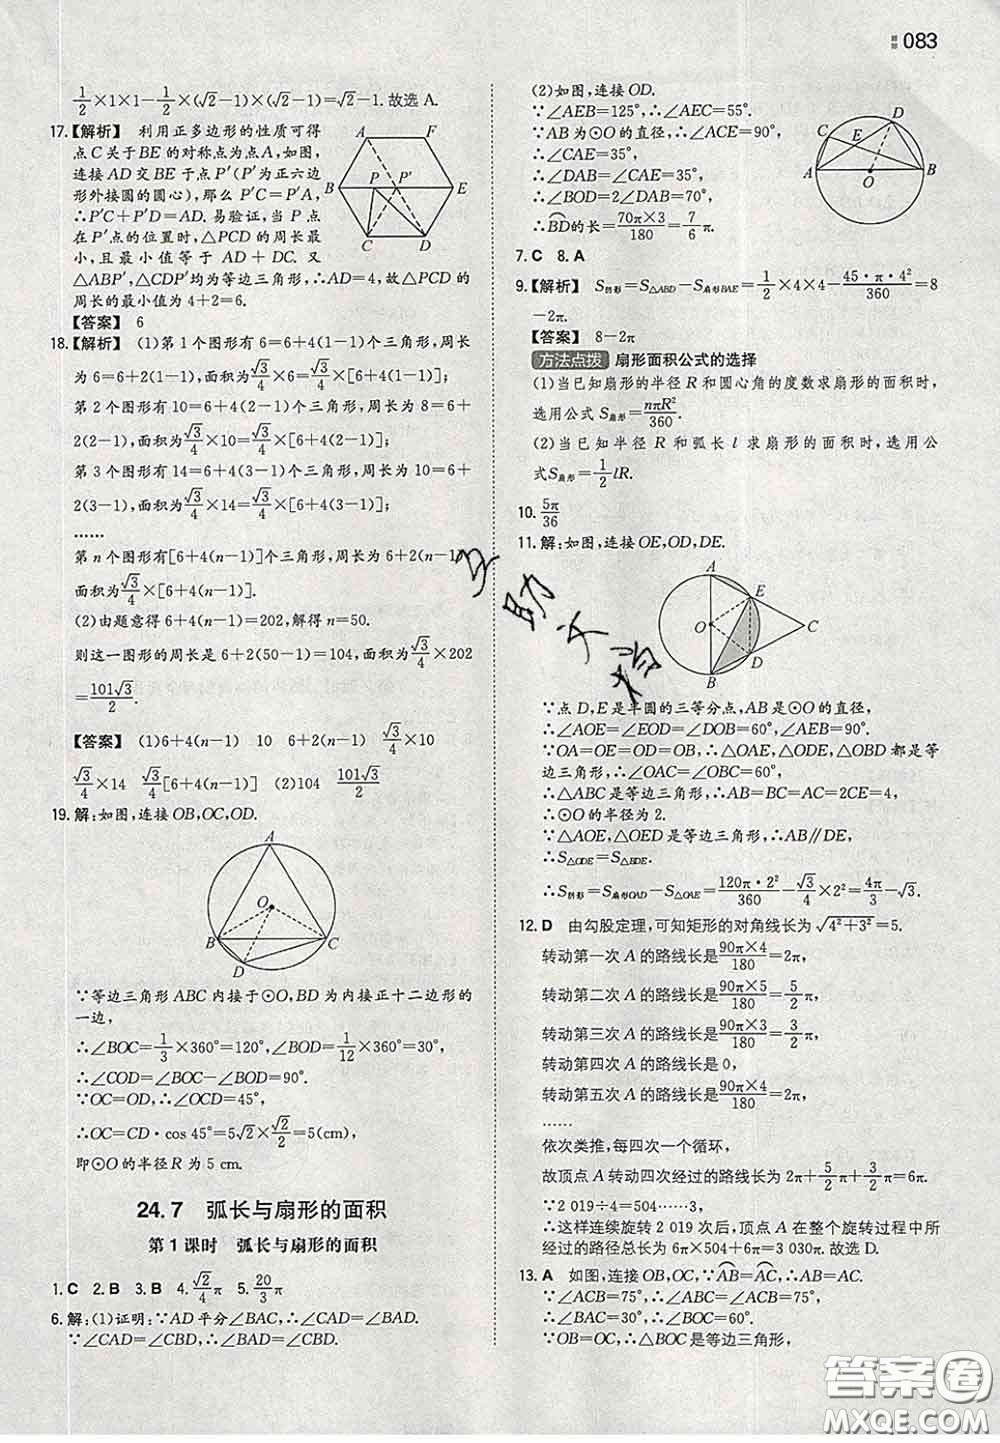 083
1/2×1×1-1/2×(√2-1)×(√2-1)=√2-1.故选 A.
17.【解析】 利用正多边形的性质可得
点C关于BE的对称点为点A,如图,
连接AD交BE于点P′(P′为正六边
形外接圆的圆心),那么 P′C=P′A,
∴P′C+P′D=AD. 易验证,当 P 点
在P′点的位置时,△PCD的周长最
小,且最小值等于 AD+DC. 又
△ABP′,△CDP′均为等边三角形,∴AD=4,故△PCD的
周长的最小值为 4+2=6.
【答案】 6
A F B P P′ E C D
18.【解析】 (1)第 1 个图形有 6=6+4(1-1)个三角形,周长
为 6=6+2(1-1),面积为√3/4×6=√3/4×[6+4(1-1)];
第 2 个图形有 10=6+4(2-1)个三角形,周长为 8=6+
2(2-1),面积为√3/4×10=√3/4×[6+4(2-1)];
第 3 个图形有 14=6+4(3-1)个三角形,周长为 10=6+
2(3-1),面积为√3/4×14=√3/4×[6+4(3-1)];
……
第 n 个图形有[6+4(n-1)]个三角形,周长为 6+2(n-1),
面积为√3/4×[6+4(n-1)].
(2)由题意得 6+4(n-1)=202,解得 n=50.
则这一图形的周长是 6+2(50-1)=104,面积为√3/4×202
=101√3/2.
【答案】 (1)6+4(n-1) 10 6+2(n-1) √3/4×10
√3/4×14 √3/4[6+4(n-1)] (2)104 101√3/2
19.解:如图,连接OB,OC,OD.
A O B C D
∵等边三角形 ABC 内接于⊙O,BD 为内接正十二边形的
一边,
∴∠BOC=1/3×360°=120°,∠BOD=1/12×360°=30°,
∴∠COD=∠BOC-∠BOD=90°.
∵OC=OD,∴∠OCD=45°,
∴OC=CD·cos 45°=5√2×√2/2=5(cm),
即⊙O的半径R为 5 cm.
24.7 弧长与扇形的面积
第 1 课时 弧长与扇形的面积
1.C 2.B 3.B 4.√2/4π 5.20/3π
6.解:(1)证明:∵AD平分∠BAC,∴∠CAD=∠BAD.
∵∠CAD=∠CBD,∴∠BAD=∠CBD.
(2)如图,连接OD.
∵∠AEB=125°,∴∠AEC=55°.
∵AB为⊙O的直径,∴∠ACE=90°,
∴∠CAE=35°,
∴∠DAB=∠CAE=35°,
∴∠BOD=2∠BAD=70°,
∴BD的长=70π×3/180=7/6π.
C E D A O B
7.C 8.A
9.【解析】 S阴影=S△ABD-S扇形BAE=1/2×4×4-45·π·4²/360=8
-2π.
【答案】 8-2π
方法点拨 扇形面积公式的选择
(1)当已知扇形的半径 R 和圆心角的度数求扇形的面积时,
选用公式 S扇形=nπR²/360.
(2)当已知半径 R 和弧长 l 求扇形的面积时,选用公
式S扇形=1/2lR.
10.5π/36
11.解:如图,连接OE,OD,DE.
A E O C D B
∵点 D,E是半圆的三等分点,AB是⊙O的直径,
∴∠AOE=∠EOD=∠DOB=60°,∠AEB=90°.
∵OA=OE=OD=OB,∴△OAE,△ODE,△OBD 都是等
边三角形,∴∠OAC=∠OBC=60°,
∴△ABC是等边三角形,∴AB=BC=AC=2CE=4,
∴⊙O的半径为 2.
∵△AOE,△OED是等边三角形,∴AB∥DE,
∴S△ODE=S△BDE.
∴S阴影=S扇形OAD-S△OAE=120π·2²/360-√3/4×2²=4π/3-√3.
12.D 由勾股定理,可知矩形的对角线长为√4²+3²=5.
转动第一次 A 的路线长是90π×4/180=2π,
转动第二次 A 的路线长是90π×5/180=5/2π,
转动第三次 A 的路线长是90π×3/180=3/2π,
转动第四次 A 的路线长是 0,
转动第五次 A 的路线长是90π×4/180=2π,
……
依次类推,每四次一个循环,
故顶点 A 转动四次经过的路线长为 2π+5/2π+3/2π=6π.
∵2 019÷4=504……3,
∴这样连续旋转 2 019 次后,顶点 A 在整个旋转过程中所
经过的路径总长为 6π×504+6π=3 030π.故选 D.
13.A 如图,连接OB,OC,∵AB=AC,∴AB=AC.
∵∠ACB=75°,∴∠ABC=∠ACB=75°,
∴∠BAC=30°,∴∠BOC=60°.
∵OB=OC,∴△BOC是等边三角形,
答案圈
MXQE.COM